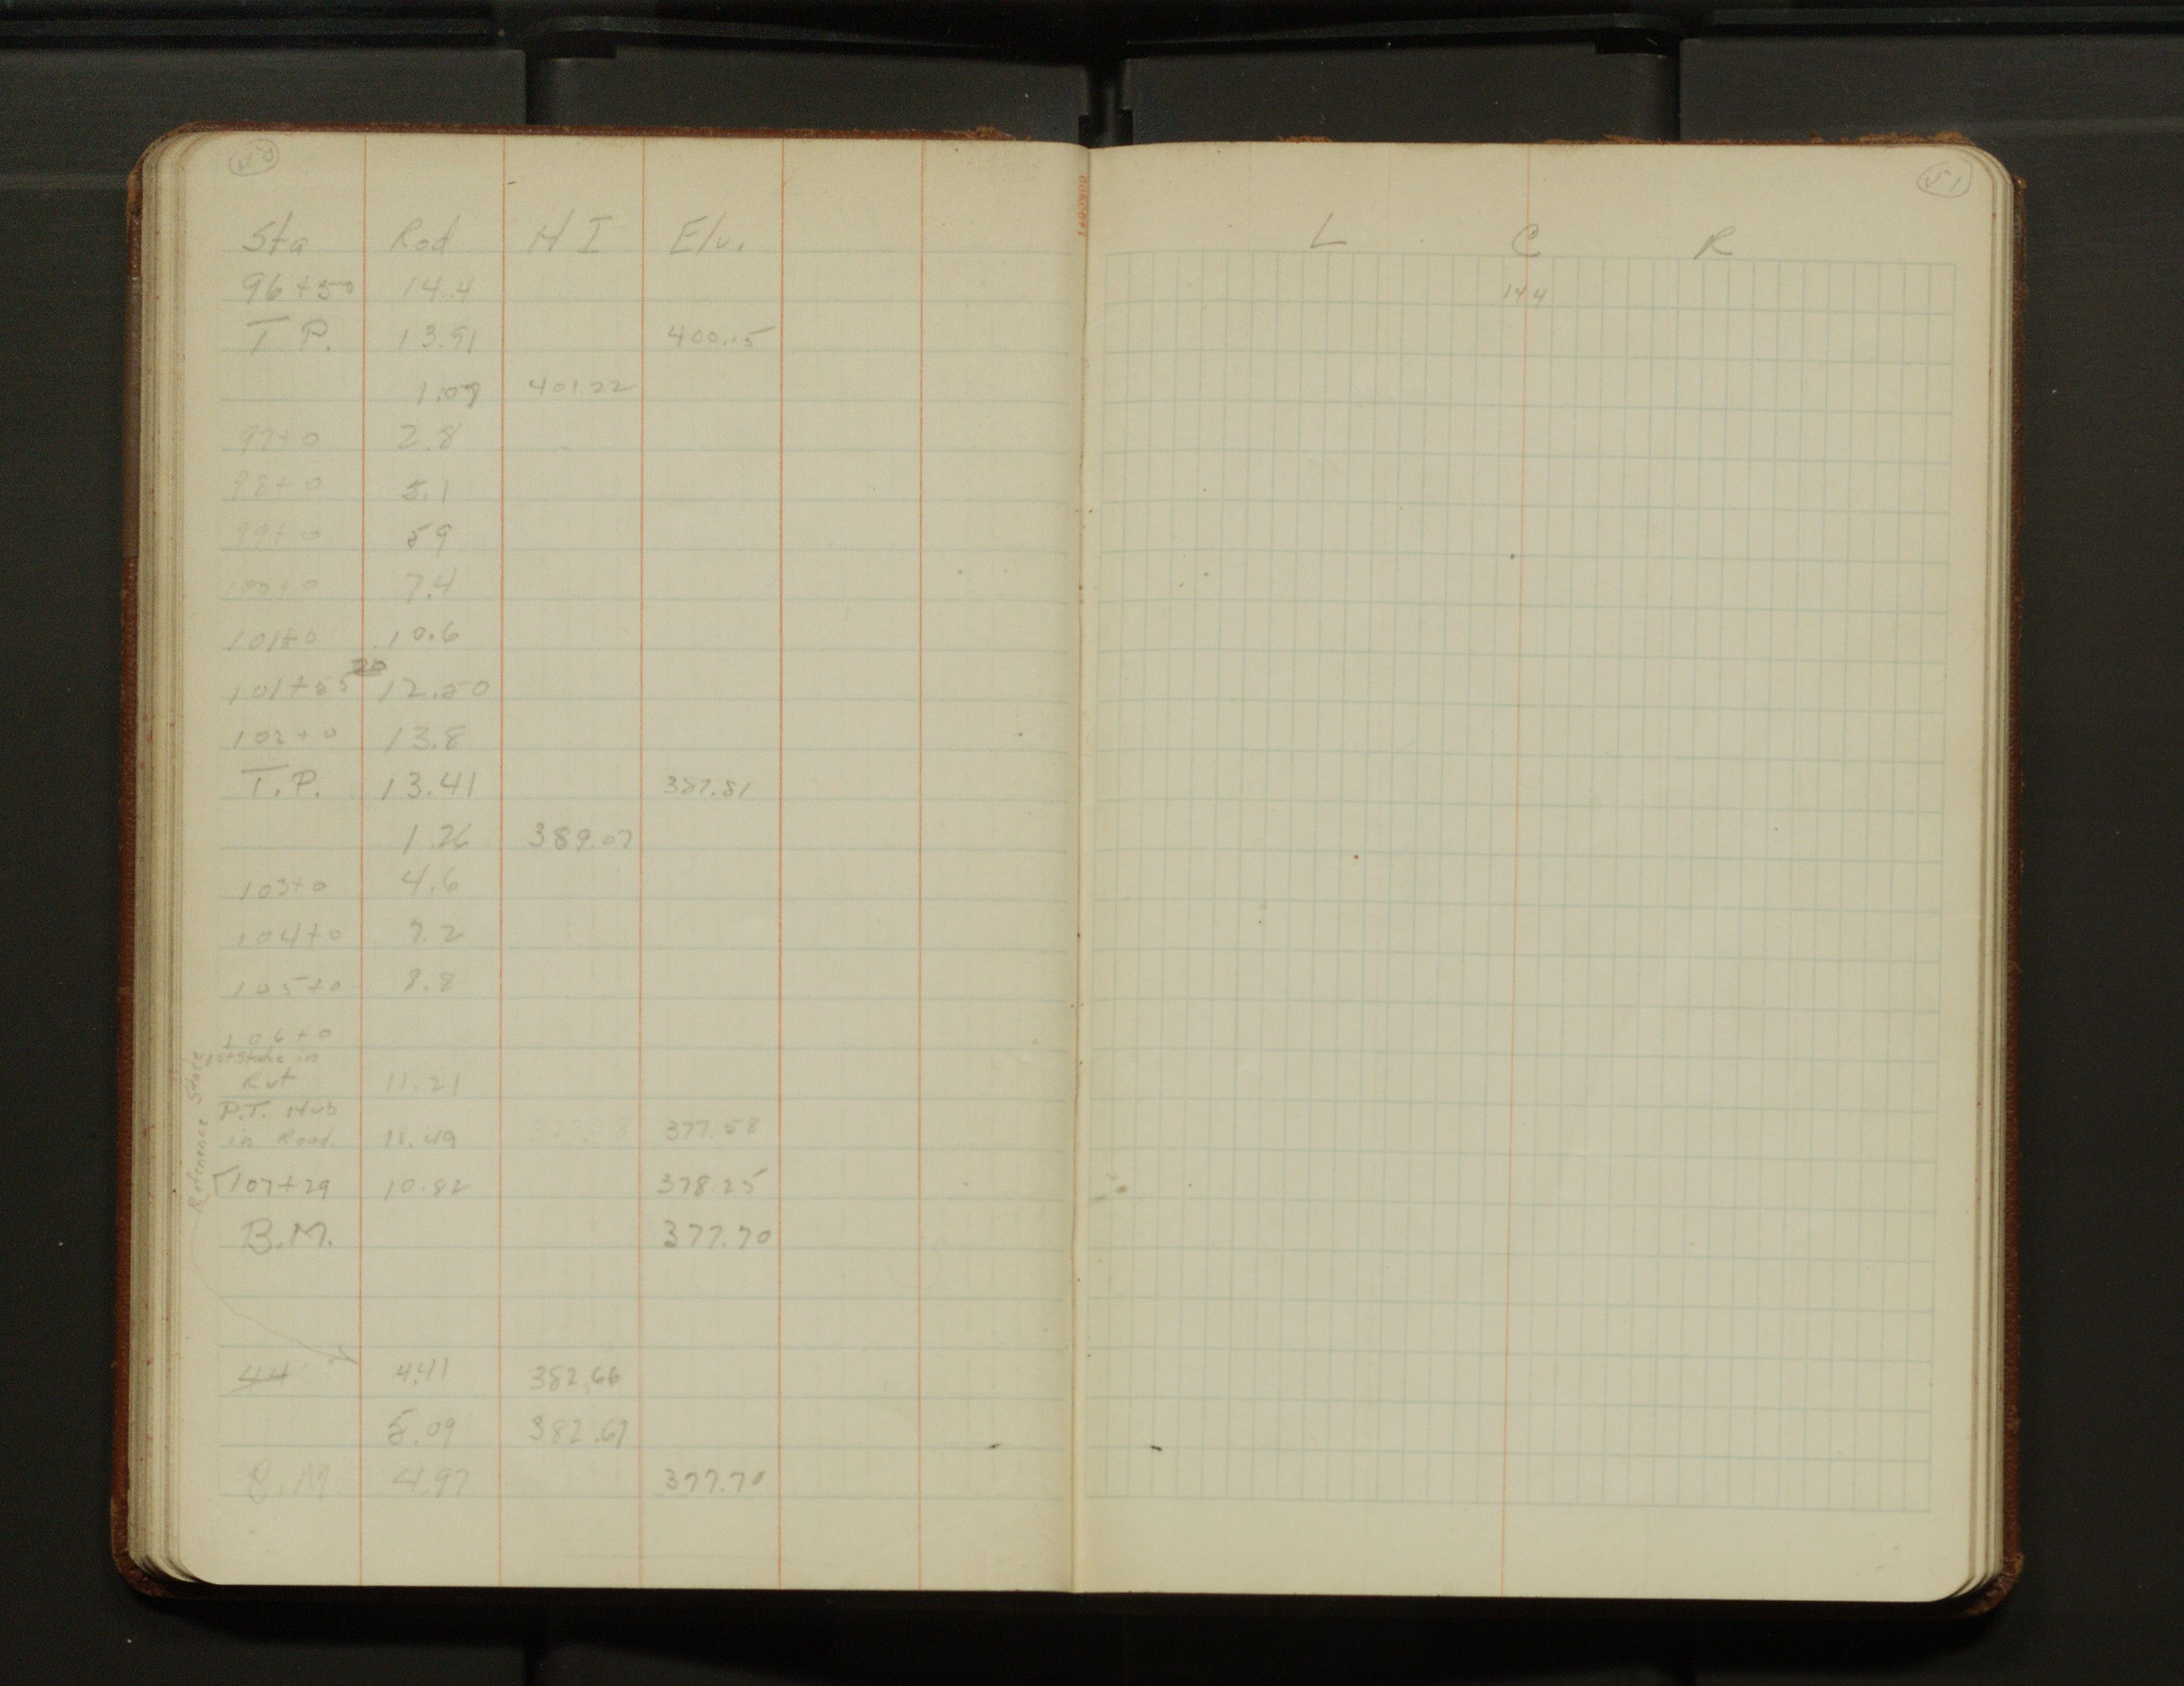 50
Sta Rod H I Elv.
96+50 14.4
T.P. 13.91 400.15
1.07 401.22
97+0 2.8
98+0 5.1
99+0 5.9
100+0 7.4
101+0 10.6
101+55 20 12.50
102+0 13.8
T.P. 13.41 387.81
1.26 389.07
103+0 4.6
104+0 7.2
105+0 8.8
106+0
1st stake in
Rut 11.21
P.T. Hub
in Road. 11.49 377.58 377.58
107+29 10.82 378.25
B.M. 377.70
Reference Stake
44 4.41 382.66
5.09 382.67
B.M 4.97 377.70
51
L C R
14.4